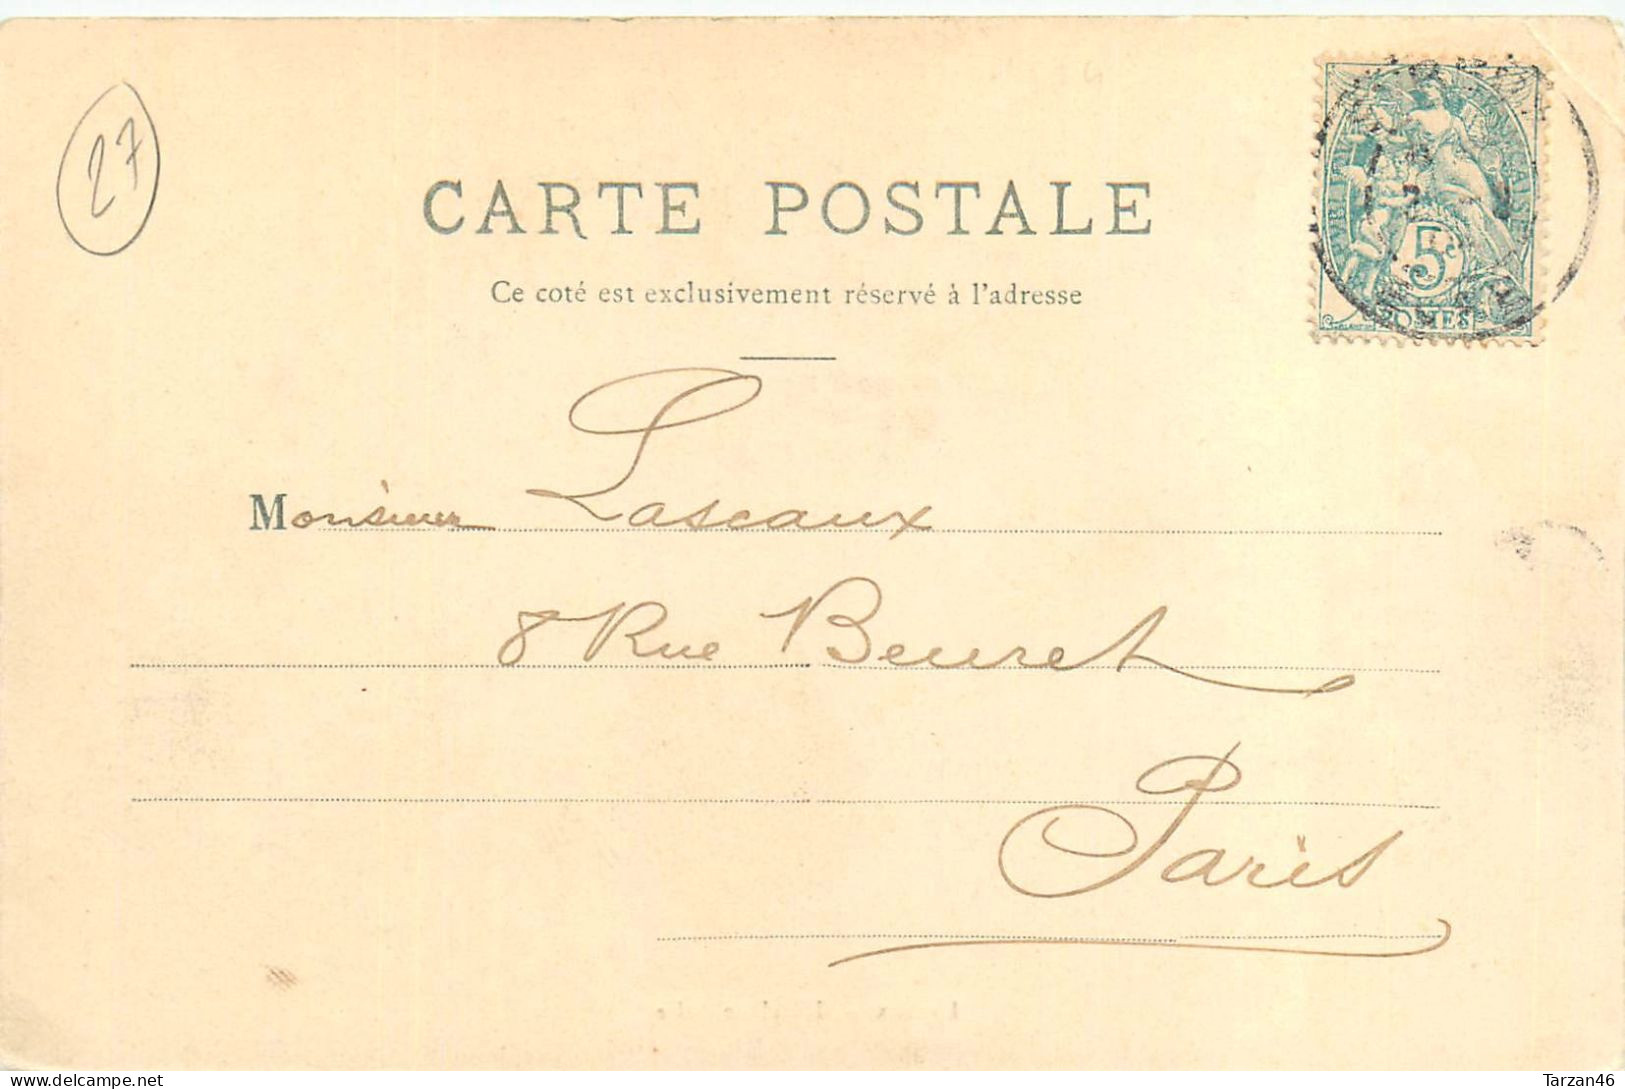 27
CARTE POSTALE
Ce coté est exclusivement réservé à l'adresse
5c
POSTES
Monsieur Lascaux
8 Rue Beuret
Paris
delcampe.net
Tarzan46